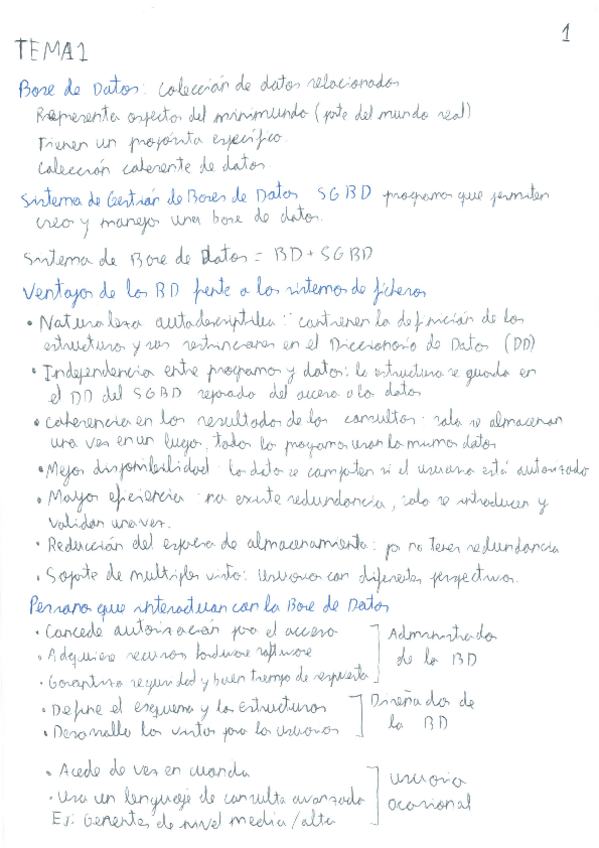 1
TEMA 1
Base de Datos: colección de datos relacionados
Representa aspectos del minimundo (parte del mundo real)
Tienen un propósito específico.
Colección coherente de datos.
Sistema de Gestión de Bases de Datos SGBD programas que permiten
crear y manejar una base de datos.
Sistema de Base de Datos = BD + SGBD
Ventajas de las BD frente a los sistemas de ficheros
• Naturaleza autodescriptiva: contienen la definición de las
estructuras y sus restricciones en el Diccionario de Datos (DD)
• Independencia entre programas y datos: la estructura se guarda en
el DD del SGBD separado del acceso a los datos
• Coherencia en los resultados de las consultas: solo se almacenan
una vez en un lugar, todos los programas usan los mismos datos
• Mejor disponibilidad: los datos se comparten si el usuario está autorizado
• Mayor eficiencia: no existe redundancia, solo se introducen y
validan una vez.
• Reducción del espacio de almacenamiento: por no tener redundancia
• Soporte de multiples vistas: usuarios con diferentes perspectivas.
Personas que interactuan con la Base de Datos
• Concede autorización para el acceso
• Adquiere recursos hardware software
• Garantiza seguridad y buen tiempo de respuesta
Administrador
de la BD
• Define el esquema y las estructuras
• Desarrolla las vistas para los usuarios
Diseñador de
la BD
• Accede de vez en cuando
• Usa un lenguaje de consulta avanzado
Ej: Gerentes de nivel medio/alto
usuario
ocasional